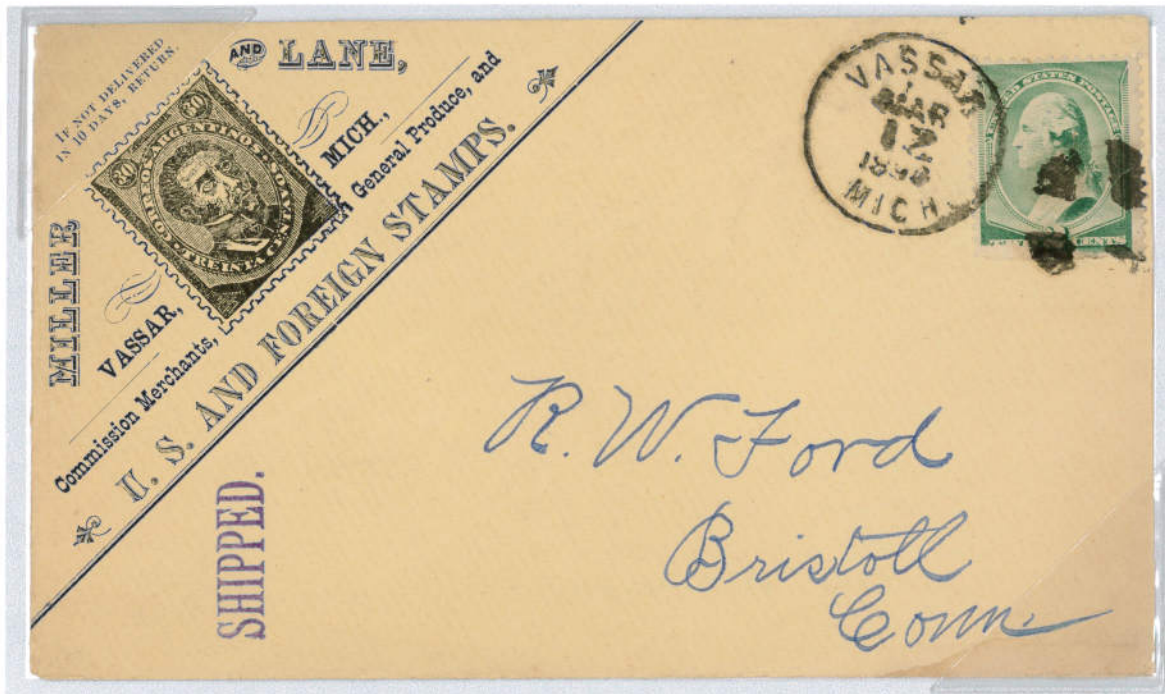 IF NOT DELIVERED
IN 10 DAYS, RETURN.
MILLER AND LANE,
VASSAR, MICH.,
Commission Merchants, General Produce, and
U. S. AND FOREIGN STAMPS.
30 30
CORREOS ARGENTINOS
TREINTA CENTAVOS
VASSAR
MAR
12
MICH.
UNITED STATES POSTAGE
SHIPPED.
R. W. Ford
Bristoll
Conn.